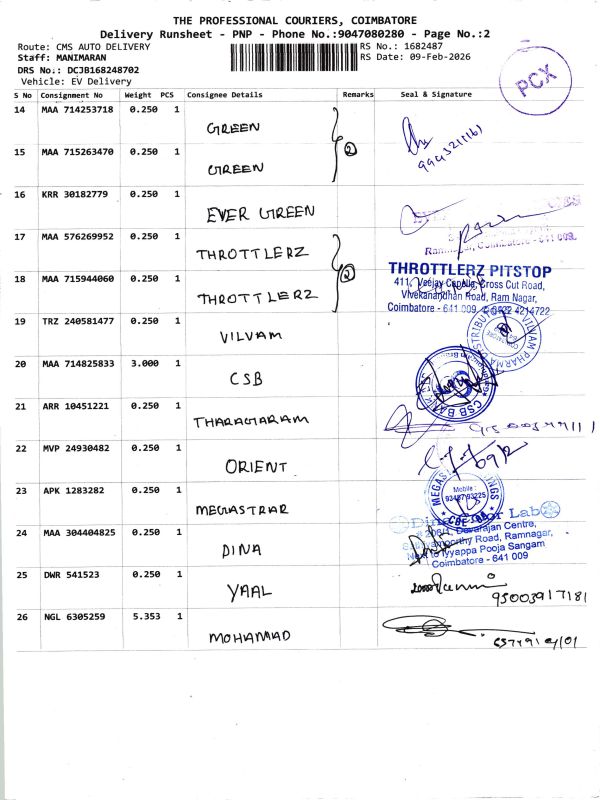 THE PROFESSIONAL COURIERS, COIMBATORE
Delivery Runsheet - PNP - Phone No.:9047080280 - Page No.:2
Route: CMS AUTO DELIVERY
RS No.: 1682487
Staff: MANIMARAN
RS Date: 09-Feb-2026
DRS No.: DCJB168248702
Vehicle: EV Delivery
PCX
S No Consignment No Weight PCS Consignee Details Remarks Seal & Signature
14 MAA 714253718 0.250 1 GREEN
15 MAA 715263470 0.250 1 GREEN
2
16 KRR 30182779 0.250 1 EVER GREEN
Coimbatore - 641 009.
17 MAA 576269952 0.250 1 THROTTLERZ
18 MAA 715944060 0.250 1 THROTTLERZ
2
THROTTLERZ PITSTOP
411, Veejay Capella, Cross Cut Road,
Vivekanandhan Road, Ram Nagar,
Coimbatore - 641 009. 0422 4214722
19 TRZ 240581477 0.250 1 VILVAM
VILVAM PHARMA DISTRIBUTORS
20 MAA 714825833 3.000 1 CSB
CSB BANK
21 ARR 10451221 0.250 1 THARAGARAM
22 MVP 24930482 0.250 1 ORIENT
23 APK 1283282 0.250 1 MEGASTRAR
Mobile:
93457 93225
24 MAA 304404825 0.250 1 DINA
Lab
Devarajan Centre,
Road, Ramnagar,
Next to Iyyappa Pooja Sangam
Coimbatore - 641 009
25 DWR 541523 0.250 1 YAAL
95003917181
26 NGL 6305259 5.353 1 MOHAMMAD